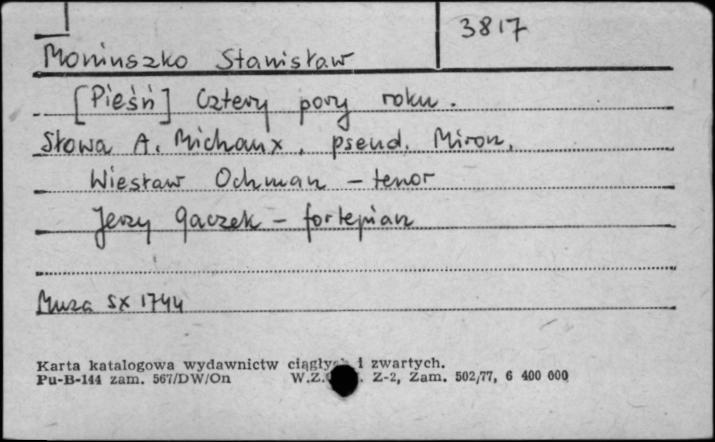 3817
Moniuszko Stanisław
[Pieśń] Cztery pory roku.
Słowa A. Michaux, pseud. Miron.
Wiesław Ochman – tenor
Jerzy Gaczek – fortepian
Muza SX 1744
Karta katalogowa wydawnictw ciągłych i zwartych.
Pu-B-144 zam. 567/DW/On W.Z. Z-2, Zam. 502/77, 6 400 000